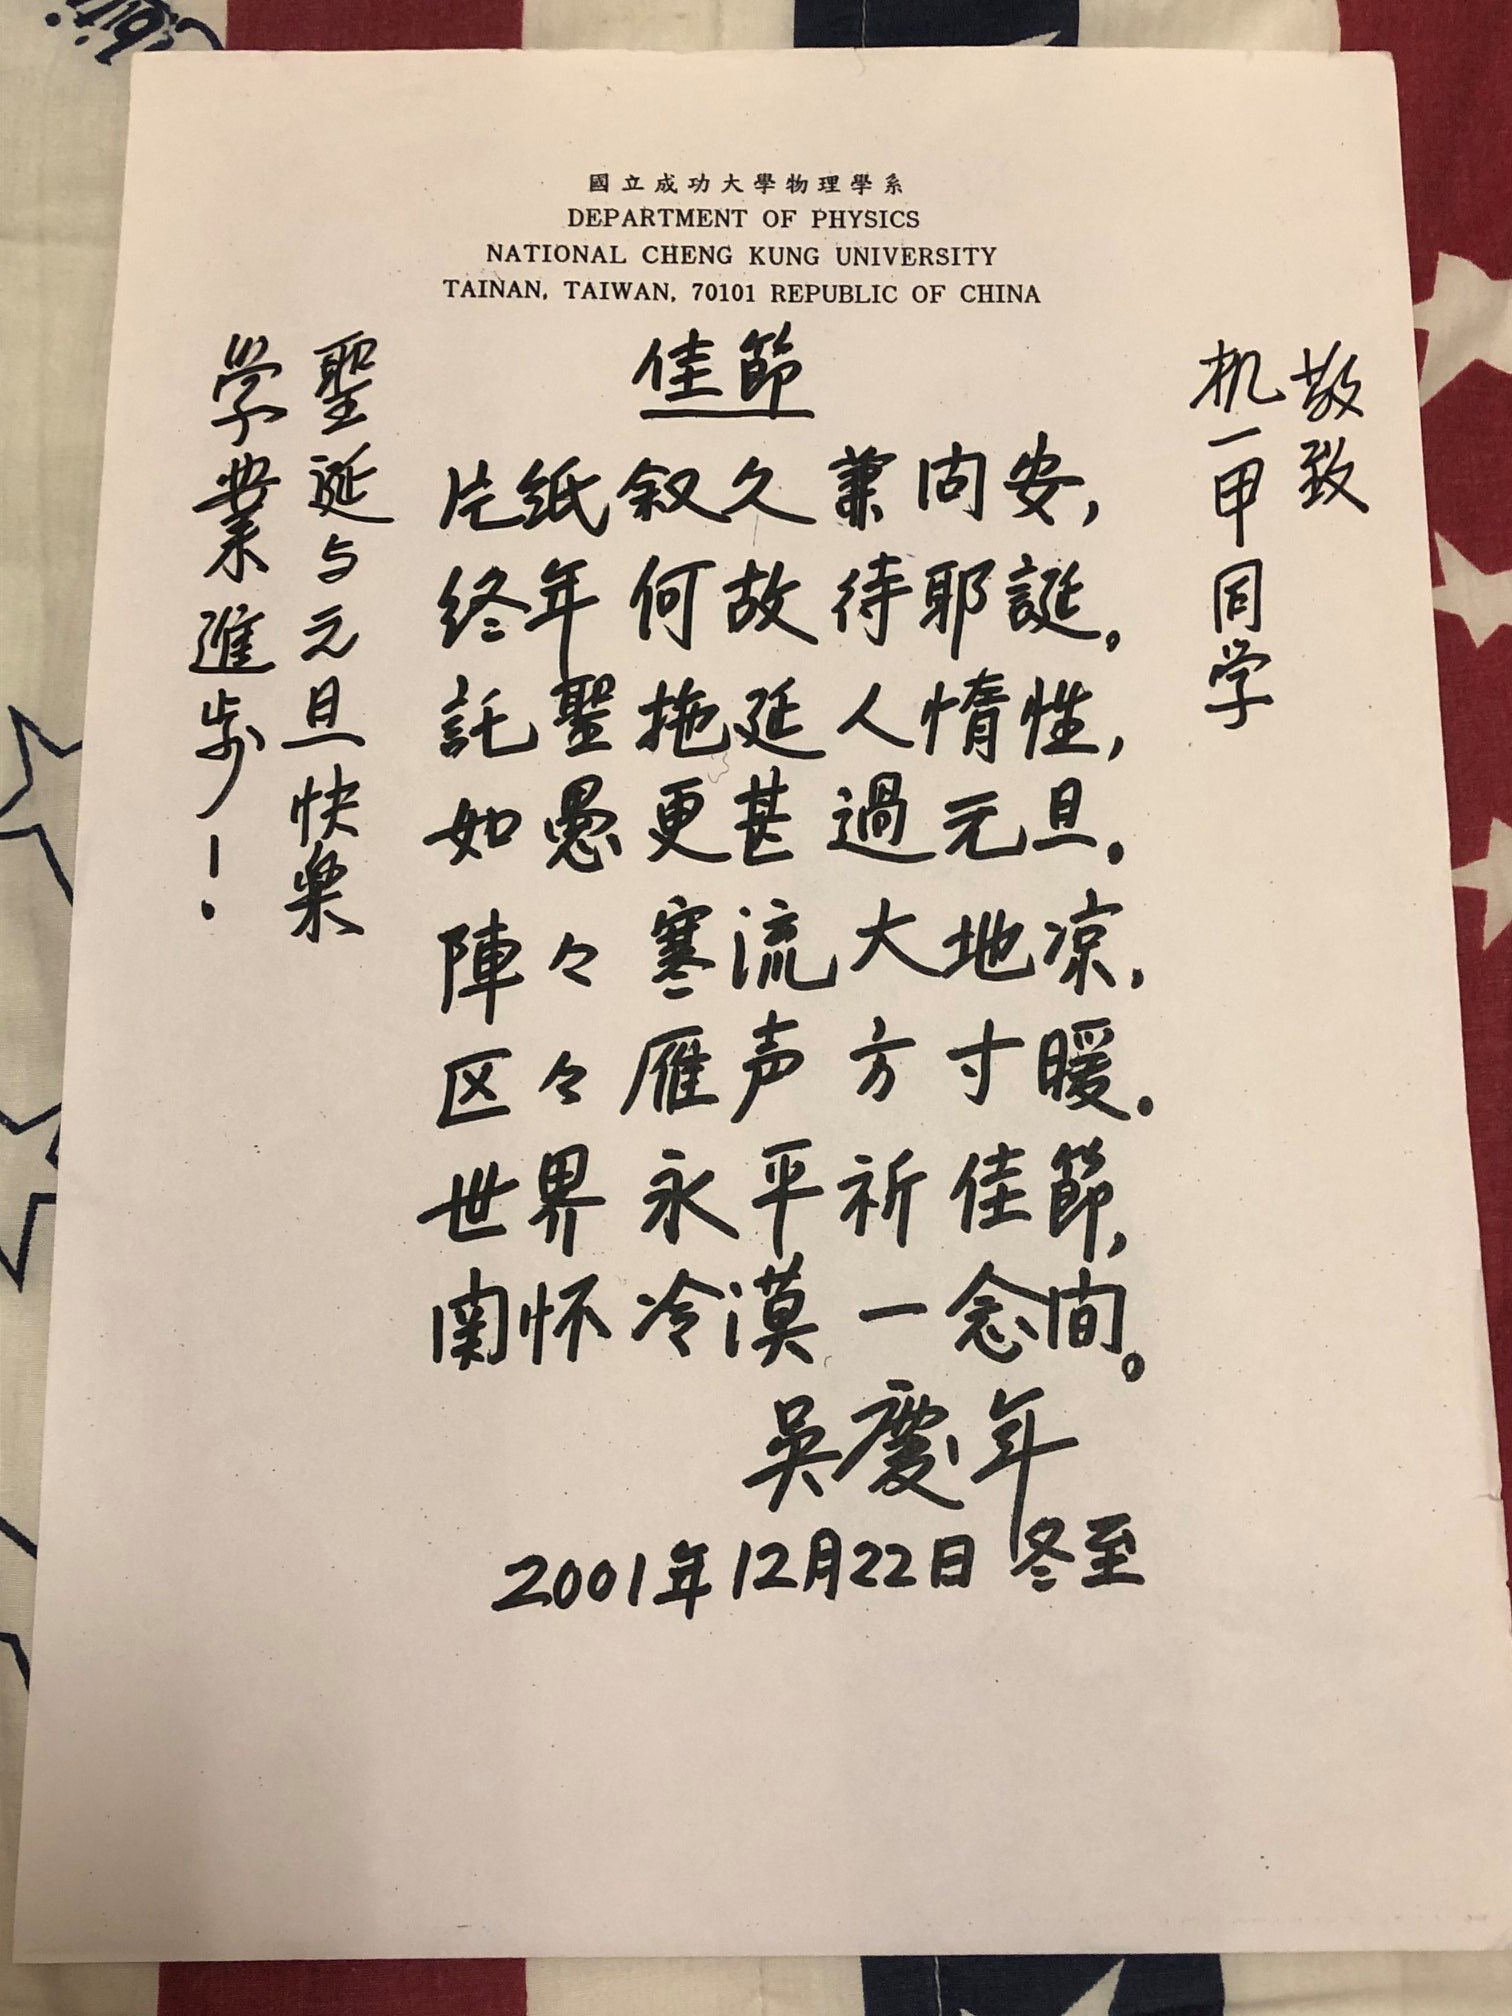 國立成功大學物理學系
DEPARTMENT OF PHYSICS
NATIONAL CHENG KUNG UNIVERSITY
TAINAN, TAIWAN, 70101 REPUBLIC OF CHINA
敬致
机一甲同学
佳節
片纸叙久兼问安,
终年何故待耶誕。
託聖拖延人惰性,
如愚更甚過元旦.
陣々寒流大地凉,
区々雁声方寸暖.
世界永平祈佳節,
関怀冷漠一念间。
吳慶年
2001年12月22日 冬至
聖诞与元旦快楽
学業進步!